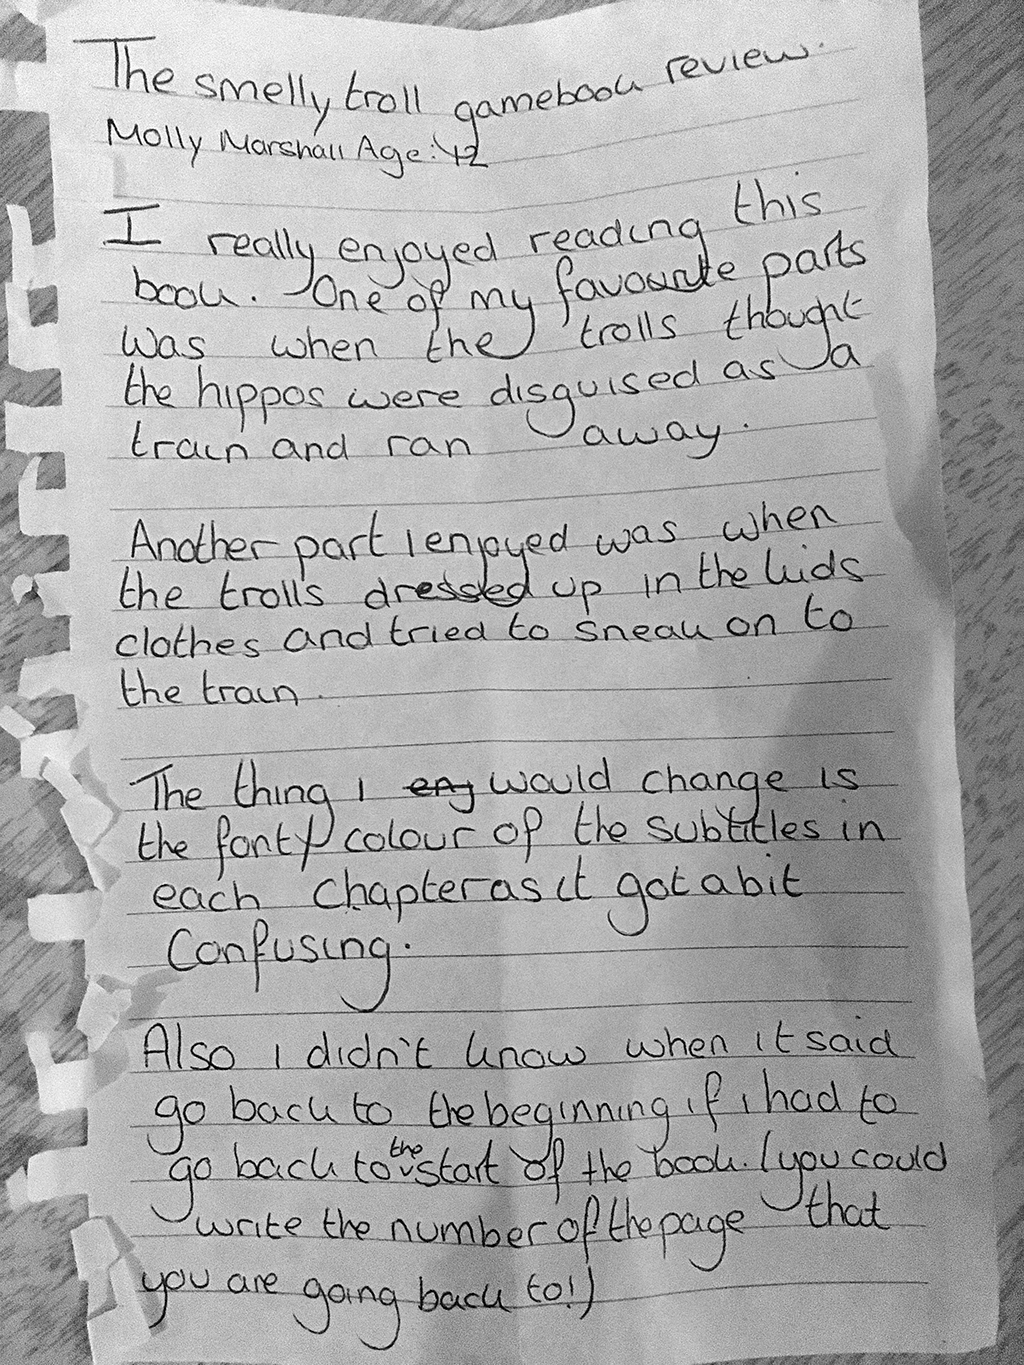 The smelly troll gamebook review.
Molly Marshall Age: 12
I really enjoyed reading this
book. One of my favourite parts
was when the trolls thought
the hippos were disguised as a
train and ran away.
Another part I enjoyed was when
the trolls dressed up in the kids
clothes and tried to sneak on to
the train.
The thing I enj would change is
the font colour of the subtitles in
each chapter as it got a bit
confusing.
Also I didn't know when it said
go back to the beginning if I had to
go back to the start of the book. (you could
write the number of the page that
you are going back to!)